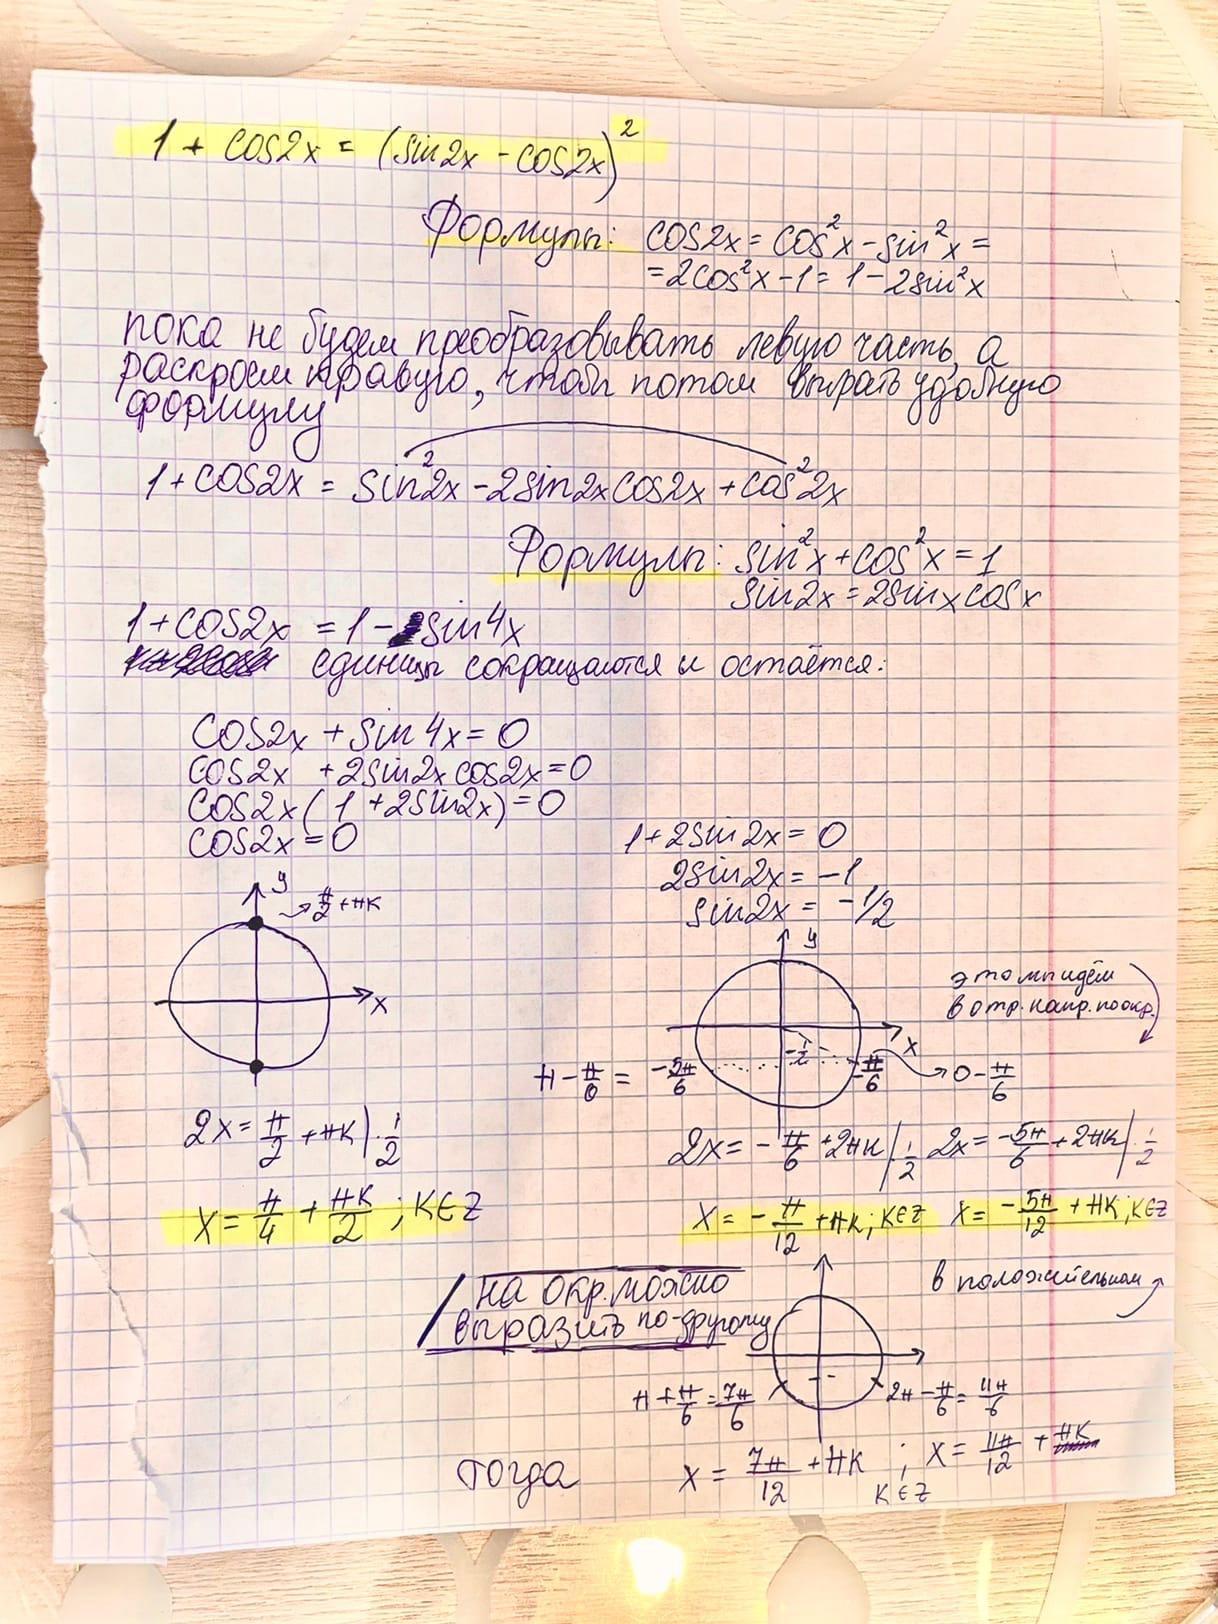 1 + cos2x = (sin2x - cos2x)²
Формулы: cos2x = cos²x - sin²x =
= 2cos²x - 1 = 1 - 2sin²x
пока не будем преобразовывать левую часть, а
раскроем правую, чтобы потом выбрать удобную
формулу
1 + cos2x = sin²2x - 2sin2xcos2x + cos²2x
Формулы: sin²x + cos²x = 1
sin2x = 2sinxcosx
1 + cos2x = 1 - sin4x
единицы сокращаются и остаётся:
cos2x + sin4x = 0
cos2x + 2sin2xcos2x = 0
cos2x(1 + 2sin2x) = 0
cos2x = 0
1 + 2sin2x = 0
2sin2x = -1
sin2x = -1/2
y
π/2 + πk
x
2x = π/2 + πk | · 1/2
x = π/4 + πk/2 ; k∈Z
y
это мы идём
в отр. напр. по окр.
x
-1/2
π - π/6 = -5π/6
-π/6
0 - π/6
2x = -π/6 + 2πk | · 1/2
2x = -5π/6 + 2πk | · 1/2
x = -π/12 + πk; k∈Z
x = -5π/12 + πk; k∈Z
на окр. можно
выразить по-другому
в положительном
π + π/6 = 7π/6
2π - π/6 = 11π/6
тогда
x = 7π/12 + πk ; x = 11π/12 + πk
k∈Z